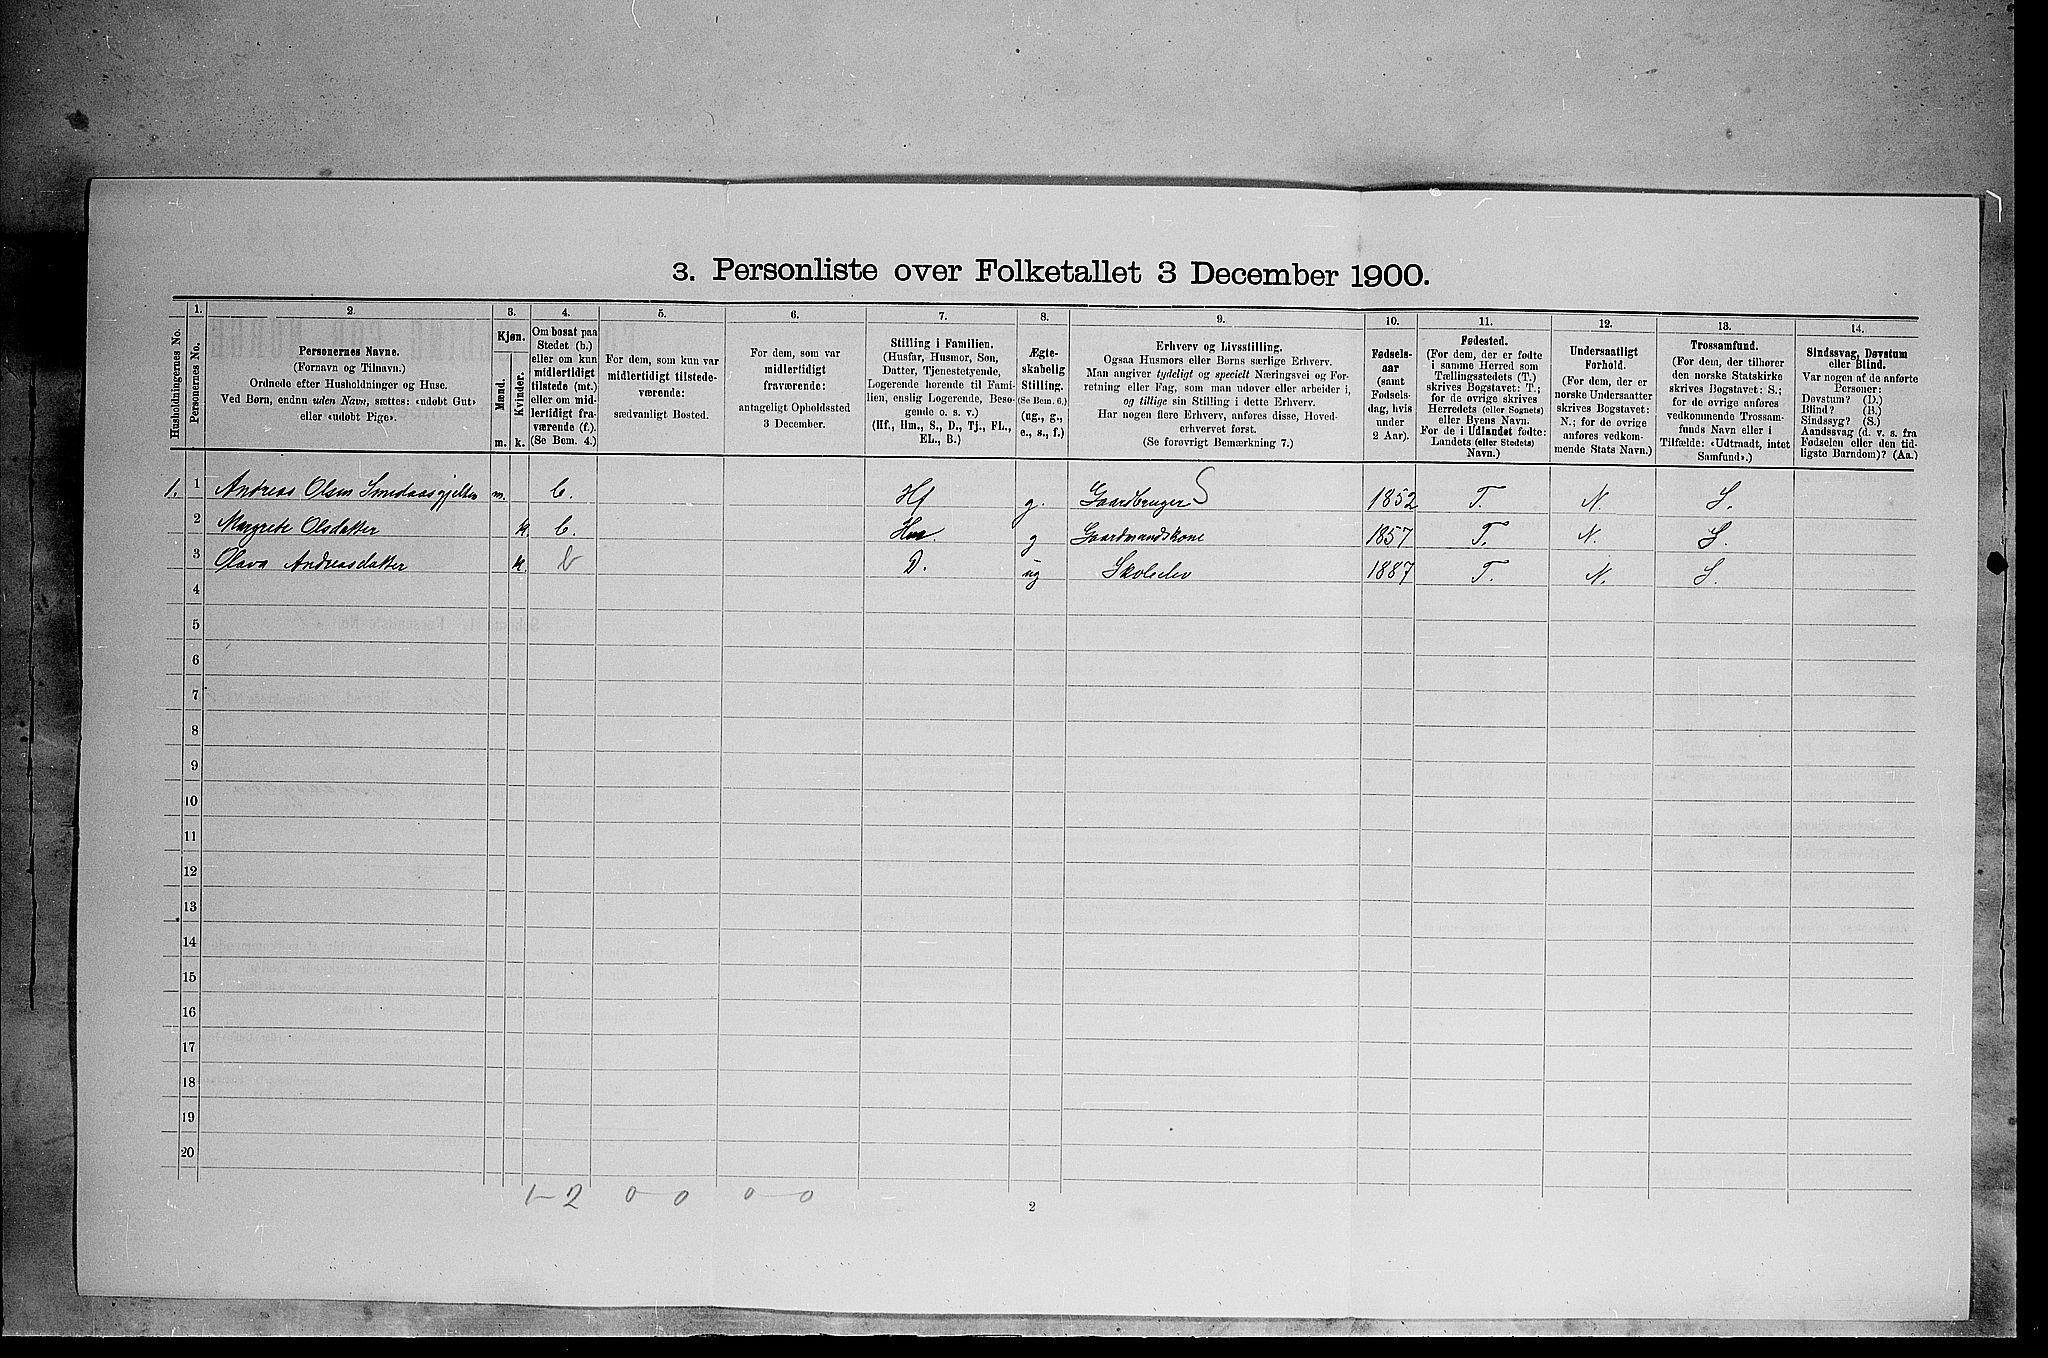 3. Personliste over Folketallet 3 December 1900.
1. 2. 3. 4. 5. 6. 7. 8. 9. 10. 11. 12. 13. 14.
Husholdningernes No.
Personernes No.
Personernes Navne.
(Fornavn og Tilnavn.)
Ordnede efter Husholdninger og Huse.
Ved Børn, endnu uden Navn, sættes: «udøbt Gut»
eller «udøbt Pige».
Kjøn.
Mænd.
Kvinder.
m. k.
Om bosat paa
Stedet (b.)
eller om kun
midlertidigt
tilstede (mt.)
eller om mid-
lertidigt fra-
værende (f.).
(Se Bem. 4.)
For dem, som kun var
midlertidigt tilstede-
værende:
sædvanligt Bosted.
For dem, som var
midlertidigt
fraværende:
antageligt Opholdssted
3 December.
Stilling i Familien.
(Husfar, Husmor, Søn,
Datter, Tjenestetyende,
Logerende hørende til Fami-
lien, enslig Logerende, Besø-
gende o. s. v.)
(Hf., Hm., S., D., Tj., FL.,
EL., B.)
Ægte-
skabelig
Stilling.
(Se Bem. 6.)
(ug., g.,
e., s., f.)
Erhverv og Livsstilling.
Ogsaa Husmors eller Børns særlige Erhverv.
Man angiver tydeligt og specielt Næringsvei og For-
retning eller Fag, som man udover eller arbeider i,
og tillige sin Stilling i dette Erhverv.
Har nogen flere Erhverv, anføres disse, Hoved-
erhvervet først.
(Se forøvrigt Bemærkning 7.)
Fødsels-
aar
(samt
Fødsels-
dag, hvis
under
2 Aar).
Fødested.
(For dem, der er fødte
i samme Herred som
Tællingsstedets (T.)
skrives Bogstavet: T.;
for de øvrige skrives
Herredets (eller Sognets)
eller Byens Navn.
For de i Udlandet fødte:
Landets (eller Stedets)
Navn.)
Undersaatligt
Forhold.
(For dem, der er
norske Undersaatter
skrives Bogstavet:
N.; for de øvrige
anføres vedkom-
mende Stats Navn.)
Trossamfund.
(For dem, der tilhører
den norske Statskirke
skrives Bogstavet: S.;
for de øvrige anføres
vedkommende Trossam-
funds Navn eller i
Tilfælde: «Udtraadt, intet
Samfund».)
Sindssvag, Døvstum
eller Blind.
Var nogen af de anførte
Personer:
Døvstum? (D.)
Blind? (B.)
Sindssyg? (S.)
Aandssvag (d. v. s. fra
Fødselen eller den tid-
ligste Barndom)? (Aa.)
1. 1 Andreas Olsen Smedaasgjelten m. b. Hf g. Gaardbruger S 1852 T. N. S.
2 Margrete Olsdatter k. b. Hm. g Gaardmandskone 1857 T. N. S.
3 Olava Andreasdatter k. b D. ug Skoleelev 1887 T. N. S.
4
5
6
7
8
9
10
11
12
13
14
15
16
17
18
19
20
1–2 0–0 0–0
2